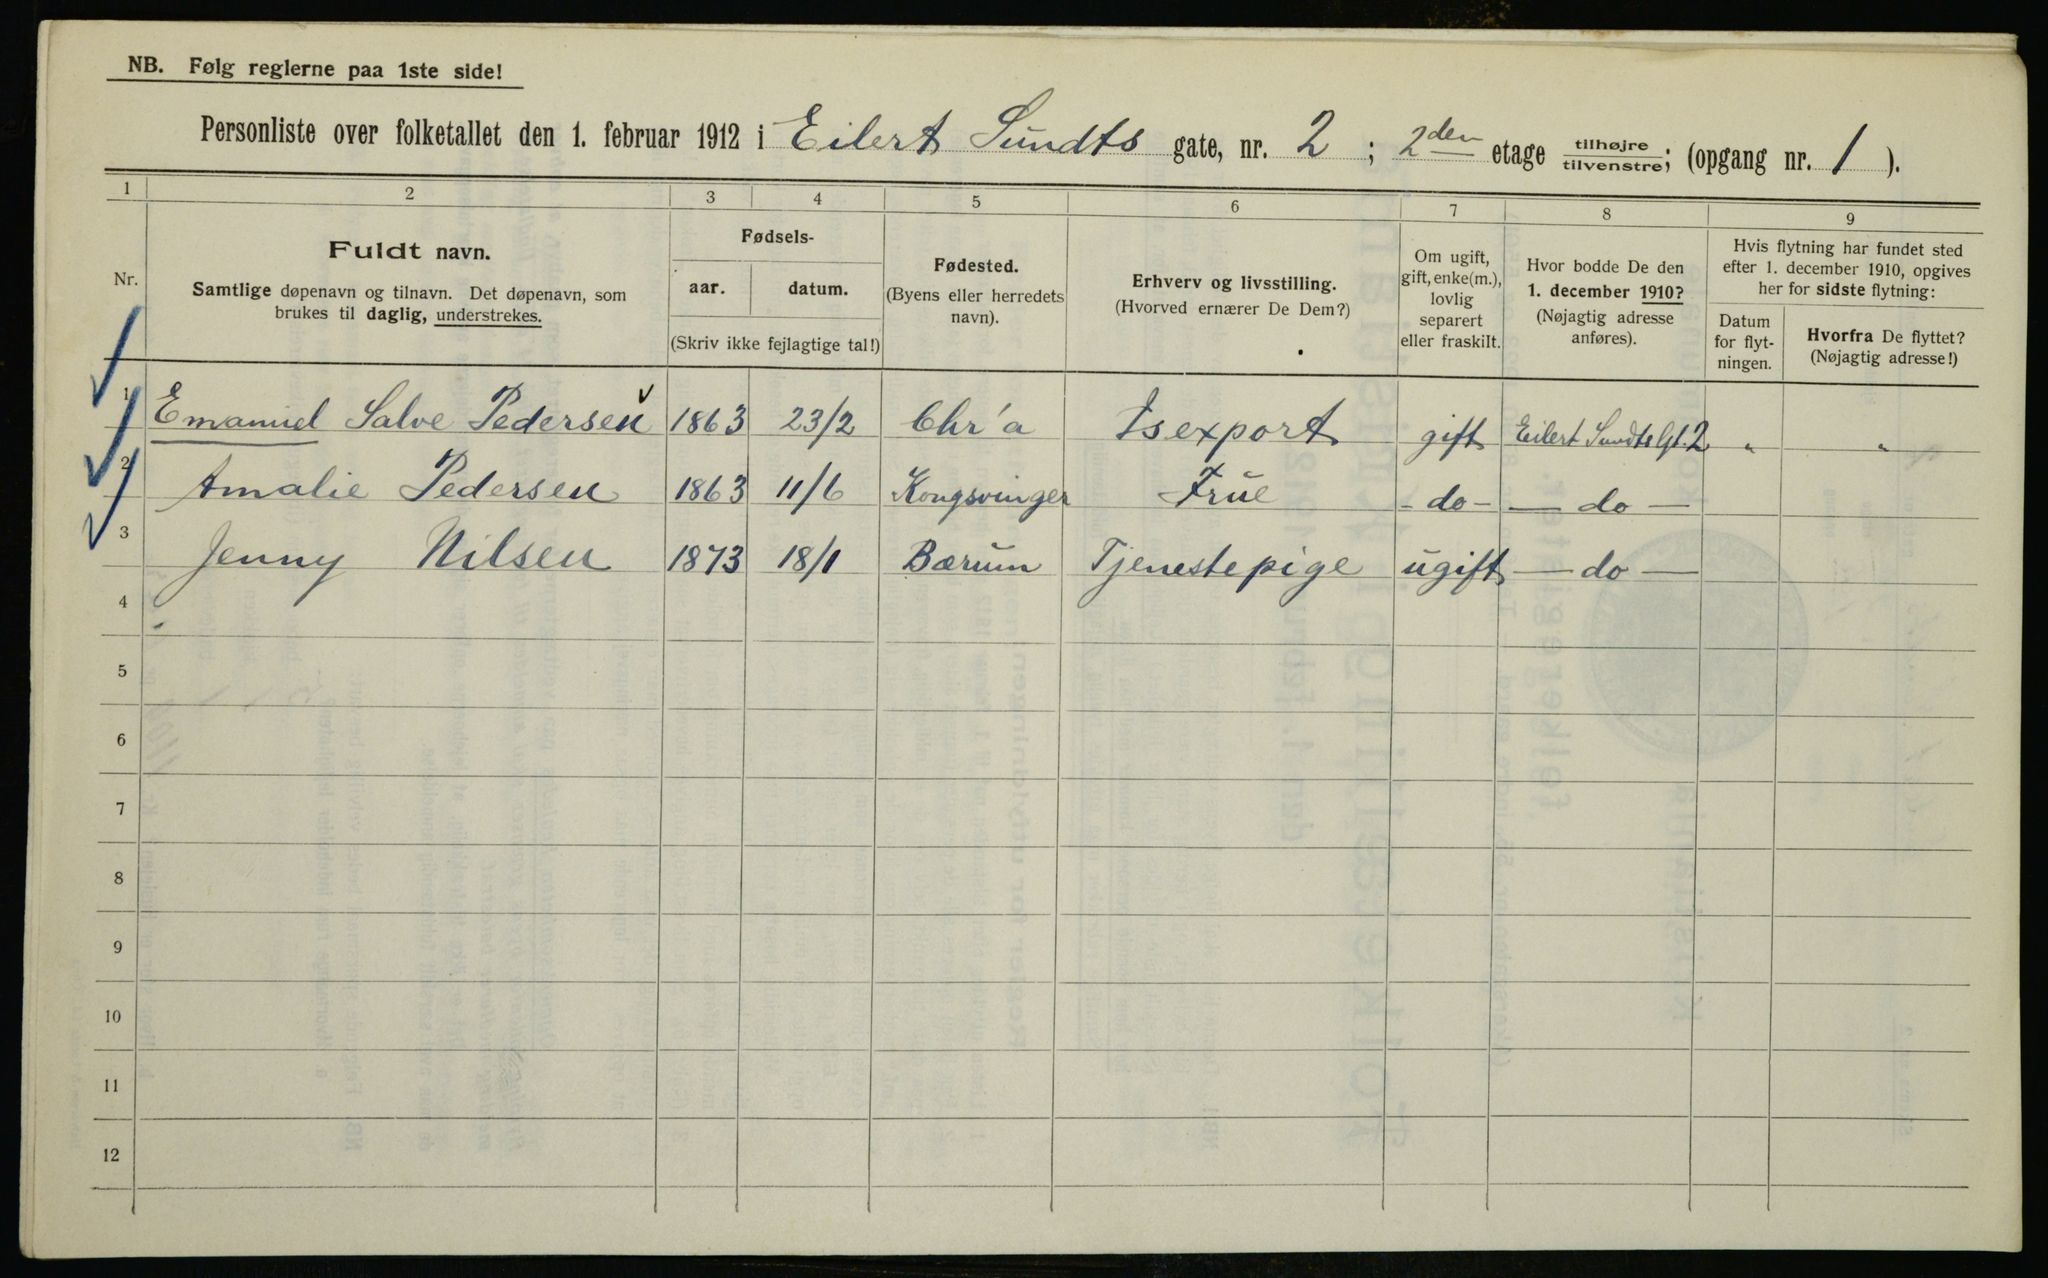 NB. Følg reglerne paa 1ste side!
Personliste over folketallet den 1. februar 1912 i Eilert Sundts gate, nr. 2 ; 2den etage tilhøjre/tilvenstre; (opgang nr. 1 ).
1 2 3 4 5 6 7 8 9
Nr.
Fuldt navn.
Samtlige døpenavn og tilnavn. Det døpenavn, som
brukes til daglig, understrekes.
Fødsels-
aar. datum.
(Skriv ikke fejlagtige tal!)
Fødested.
(Byens eller herredets
navn).
Erhverv og livsstilling.
(Hvorved ernærer De Dem?)
Om ugift,
gift, enke(m.),
lovlig
separert
eller fraskilt.
Hvor bodde De den
1. december 1910?
(Nøjagtig adresse
anføres).
Hvis flytning har fundet sted
efter 1. december 1910, opgives
her for sidste flytning:
Datum
for flyt-
ningen.
Hvorfra De flyttet?
(Nøjagtig adresse!)
1 Emanuel Salve Pedersen 1863 23/2 Chr'a Isexport gift Eilert Sundts Gt. 2 " "
2 Amalie Pedersen 1863 11/6 Kongsvinger Frue - do - - do -
3 Jenny Nilsen 1873 18/1 Bærum Tjenestepige ugift - do -
4
5
6
7
8
9
10
11
12